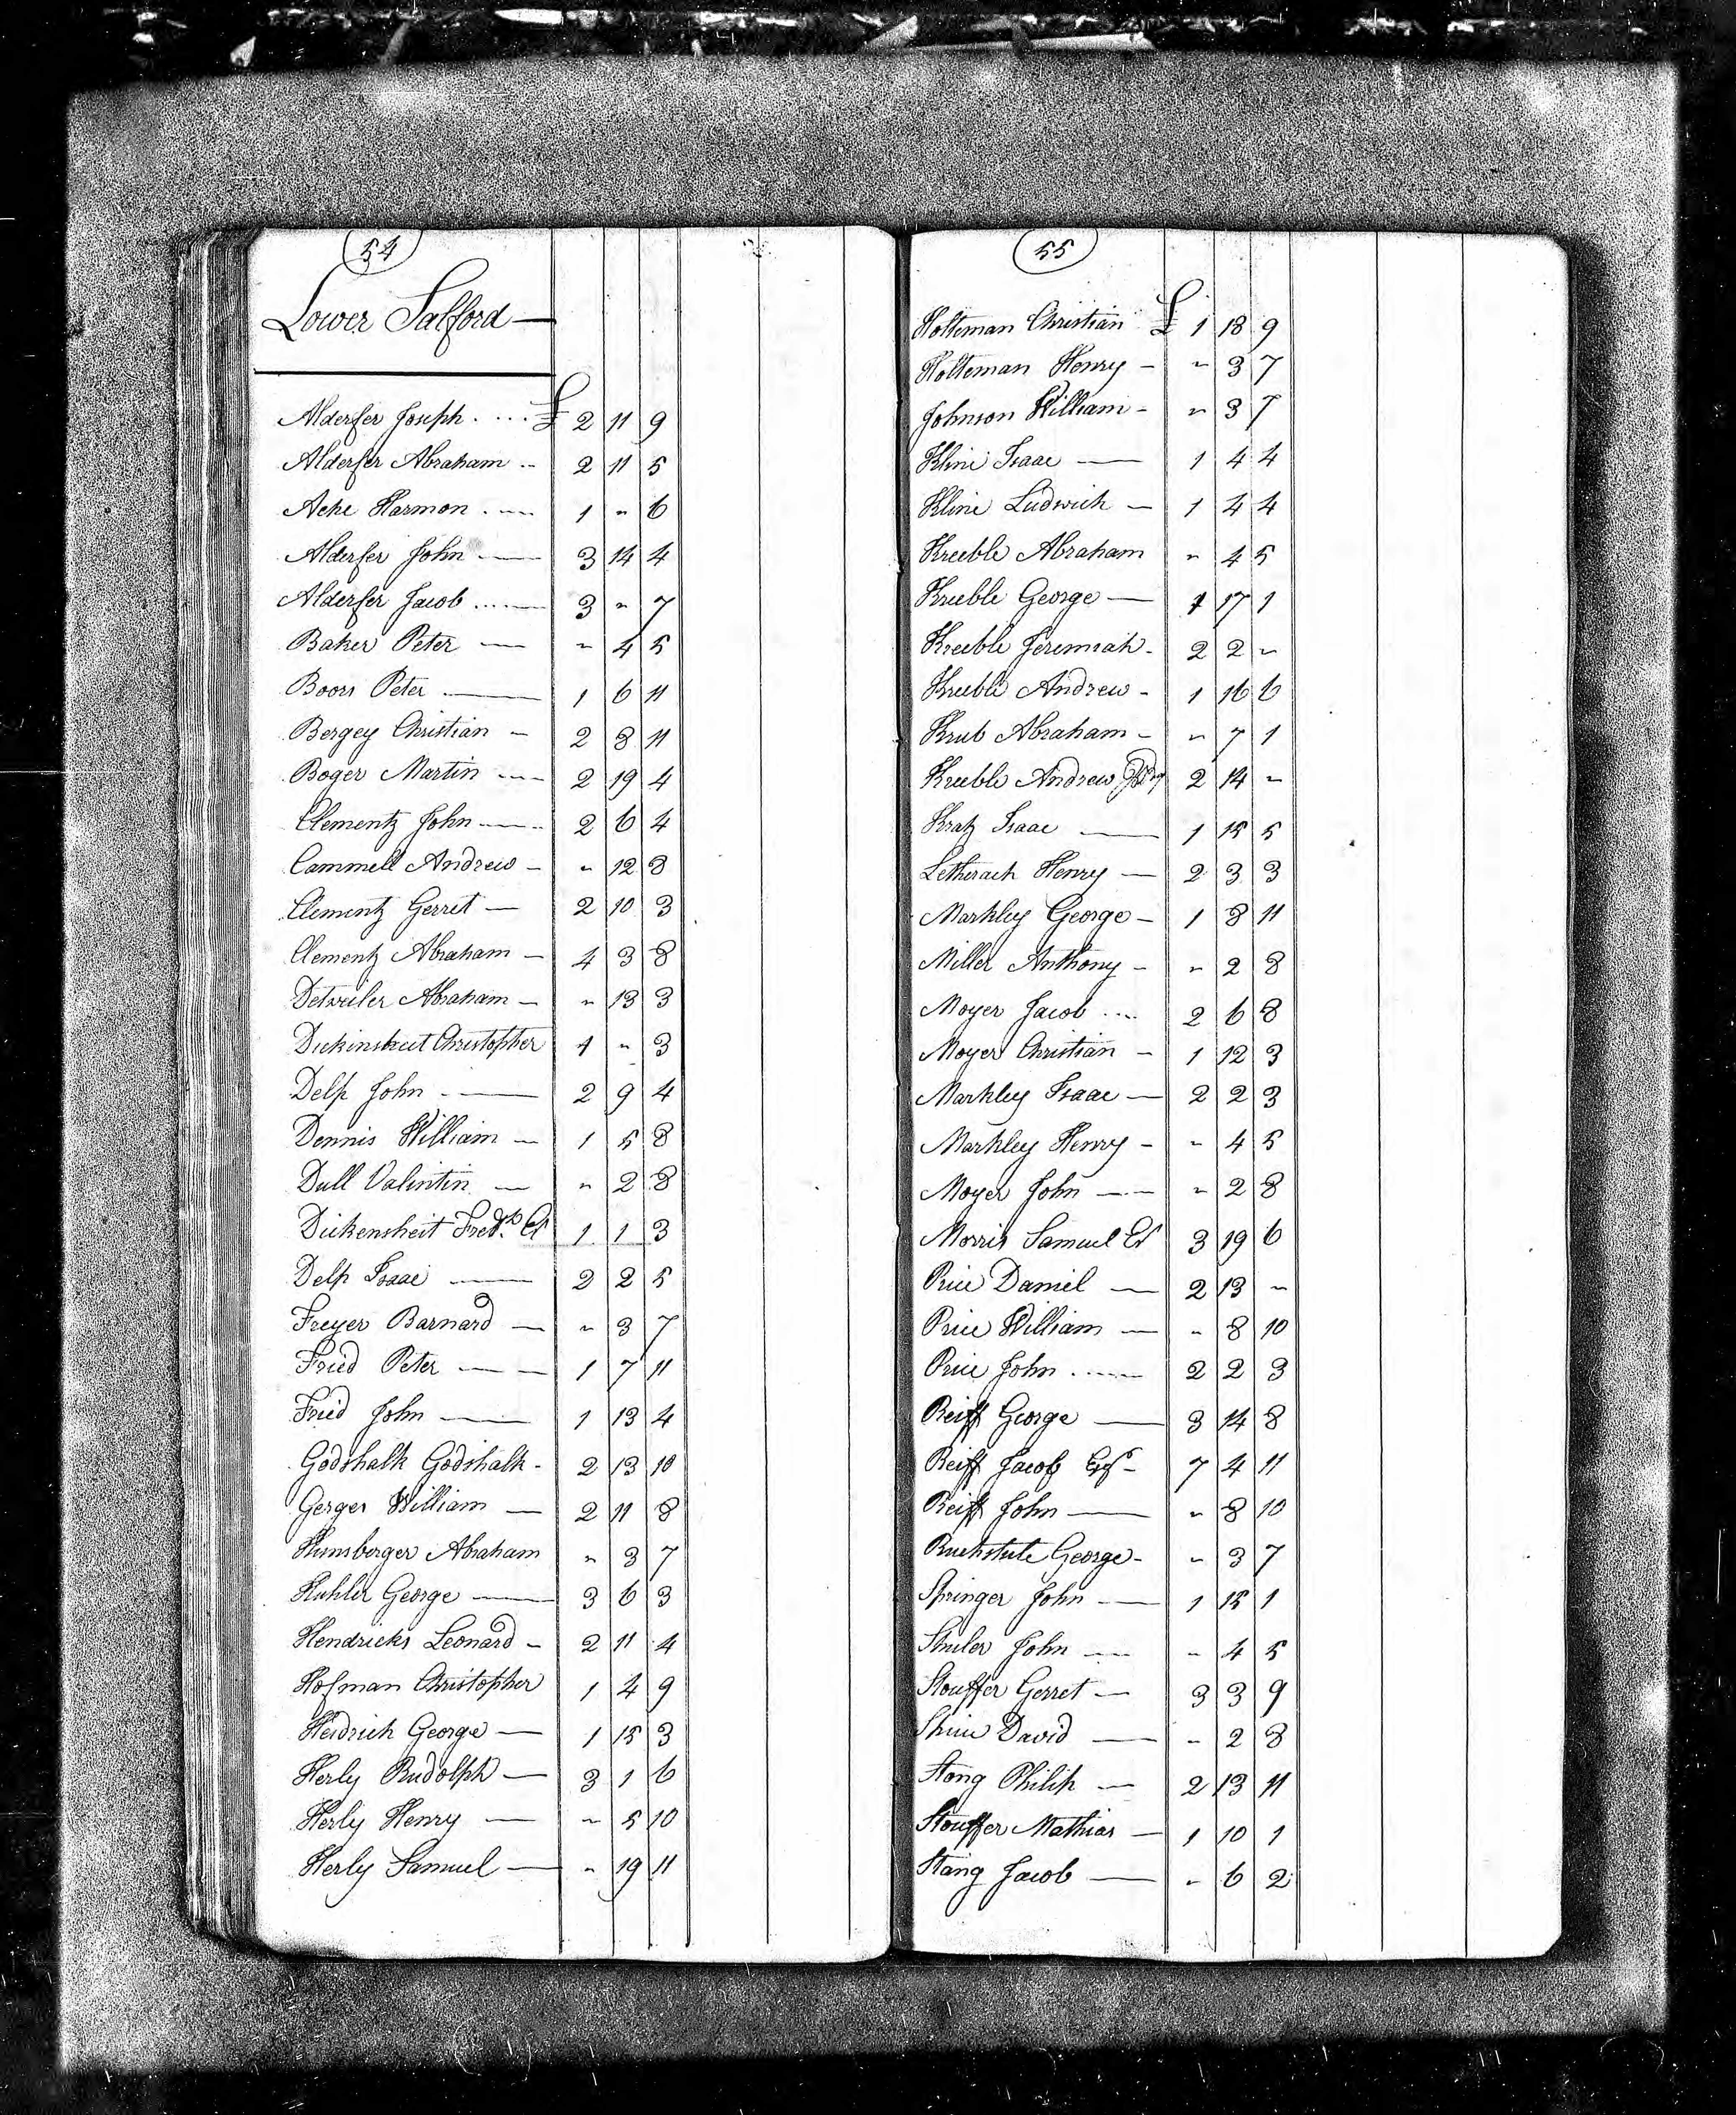 54
Lower Salford —
Alderfer Joseph . . . . £ 2 11 9
Alderfer Abraham .. 2 11 5
Ache Harmon . --- 1 " 6
Alderfer John — 3 14 4
Alderfer Jacob ..... — 3 " 7
Baker Peter — " 4 5
Boors Peter — 1 6 11
Bergey Christian — 2 8 11
Boger Martin --- 2 19 4
Clementz John --- 2 6 4
Cammell Andrew — " 12 8
Clementz Gerret — 2 10 3
Clementz Abraham — 4 3 8
Detweiler Abraham — " 13 3
Dickinsheit Christopher 1 " 3
Delp John — 2 9 4
Dennis William — 1 5 8
Dull Valintin — " 2 8
Dickensheit Fredk. Et 1 1 3
Delp Isaac — 2 2 5
Freyer Barnard — " 3 7
Fried Peter — — 1 7 11
Fried John — 1 13 4
Godshalk Godshalk - 2 13 10
Gerger William — 2 11 8
Hunsberger Abraham " 3 7
Hahler George — 3 6 3
Hendricks Leonard — 2 11 4
Hofman Christopher 1 4 9
Heidrich George — 1 15 3
Herly Rudolph — 3 1 6
Herly Henry — " 5 10
Herly Samuel — " 19 11
55
Holteman Christian £ 1 18 9
Holteman Henry — " 3 7
Johnson William - " 3 7
Kline Isaac — 1 4 4
Kline Ludwich — 1 4 4
Kreeble Abraham " 4 5
Kreeble George — 1 17 1
Kreeble Jeremiah - 2 2 "
Kreeble Andrew - 1 16 6
Krub Abraham - " 7 1
Kreeble Andrew 2 14 "
Kratz Isaac — 1 15 5
Letherach Henry — 2 3 3
Markley George — 1 8 11
Miller Anthony — " 2 8
Moyer Jacob .... 2 6 8
Moyer Christian — 1 12 3
Markley Isaac — 2 2 3
Markley Henry - " 4 5
Moyer John — " 2 8
Morris Samuel Et 3 19 6
Price Daniel — 2 13 "
Price William — " 8 10
Price John ..... — 2 2 3
Reiff George — 3 14 8
Reiff Jacob Esq. - 7 4 11
Reiff John — " 8 10
Ruchstule George - " 3 7
Springer John — 1 15 1
Shuler John — " 4 5
Stouffer Gerret — 3 3 9
Shive David — " 2 8
Stong Philip — 2 13 11
Stouffer Mathias — 1 10 1
Stang Jacob — " 6 2